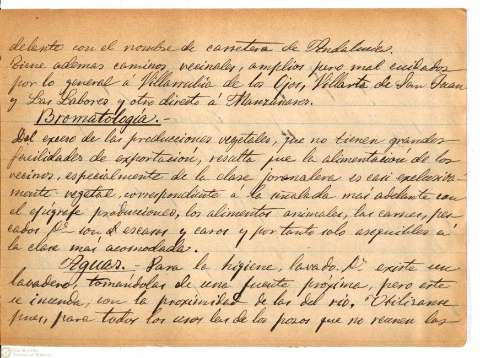 delante con el nombre de carretera de Andalucia.
Tiene ademas caminos vecinales, amplios pero mal cuidados
por lo general á Villarrubia de los Ojos, Villarta de San Juan
y Las Labores y otro directo á Manzanares.
Bromatologia.-
Del exceso de las producciones vegetales, que no tienen grandes
facilidades de exportacion, resulta que la alimentacion de los
vecinos, especialmente de la clase jornalera es casi exclusiva-
mente vegetal, correspondiente á la señalada mas adelante con
el epígrafe producciones, los alimentos animales, las carnes, pes-
cados &ª son escasos y caros y por tanto solo asequibles á
la clase mas acomodada.
Aguas.- Para la higiene, lavado &ª existe un
lavadero, tomándolas de una fuente proxima, pero este
se inunda, con la proximidad de las del rio. Utilizanse
pues, para todos los usos las de los pozos que no reunen las